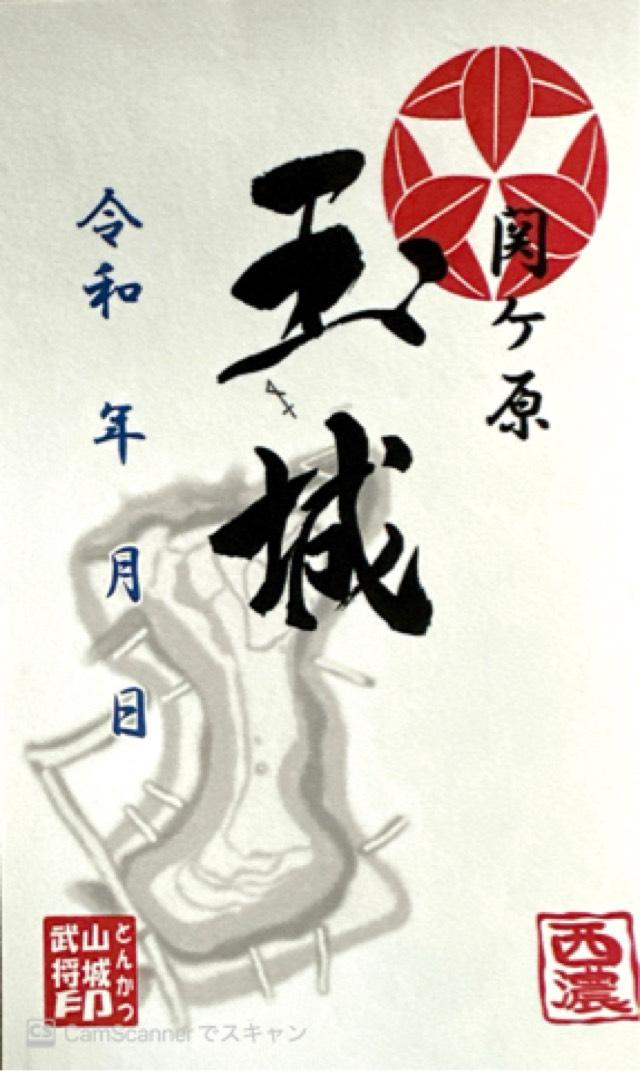 関ケ原
玉城
令和 年 月 日
西濃
とんかつ
山城
武将印
CamScannerでスキャン